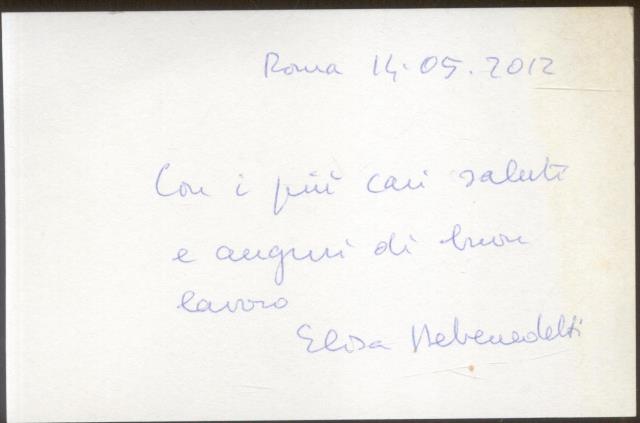 Roma 14.05.2012
Con i più cari saluti
e auguri di buon
lavoro
Elisa Debenedetti